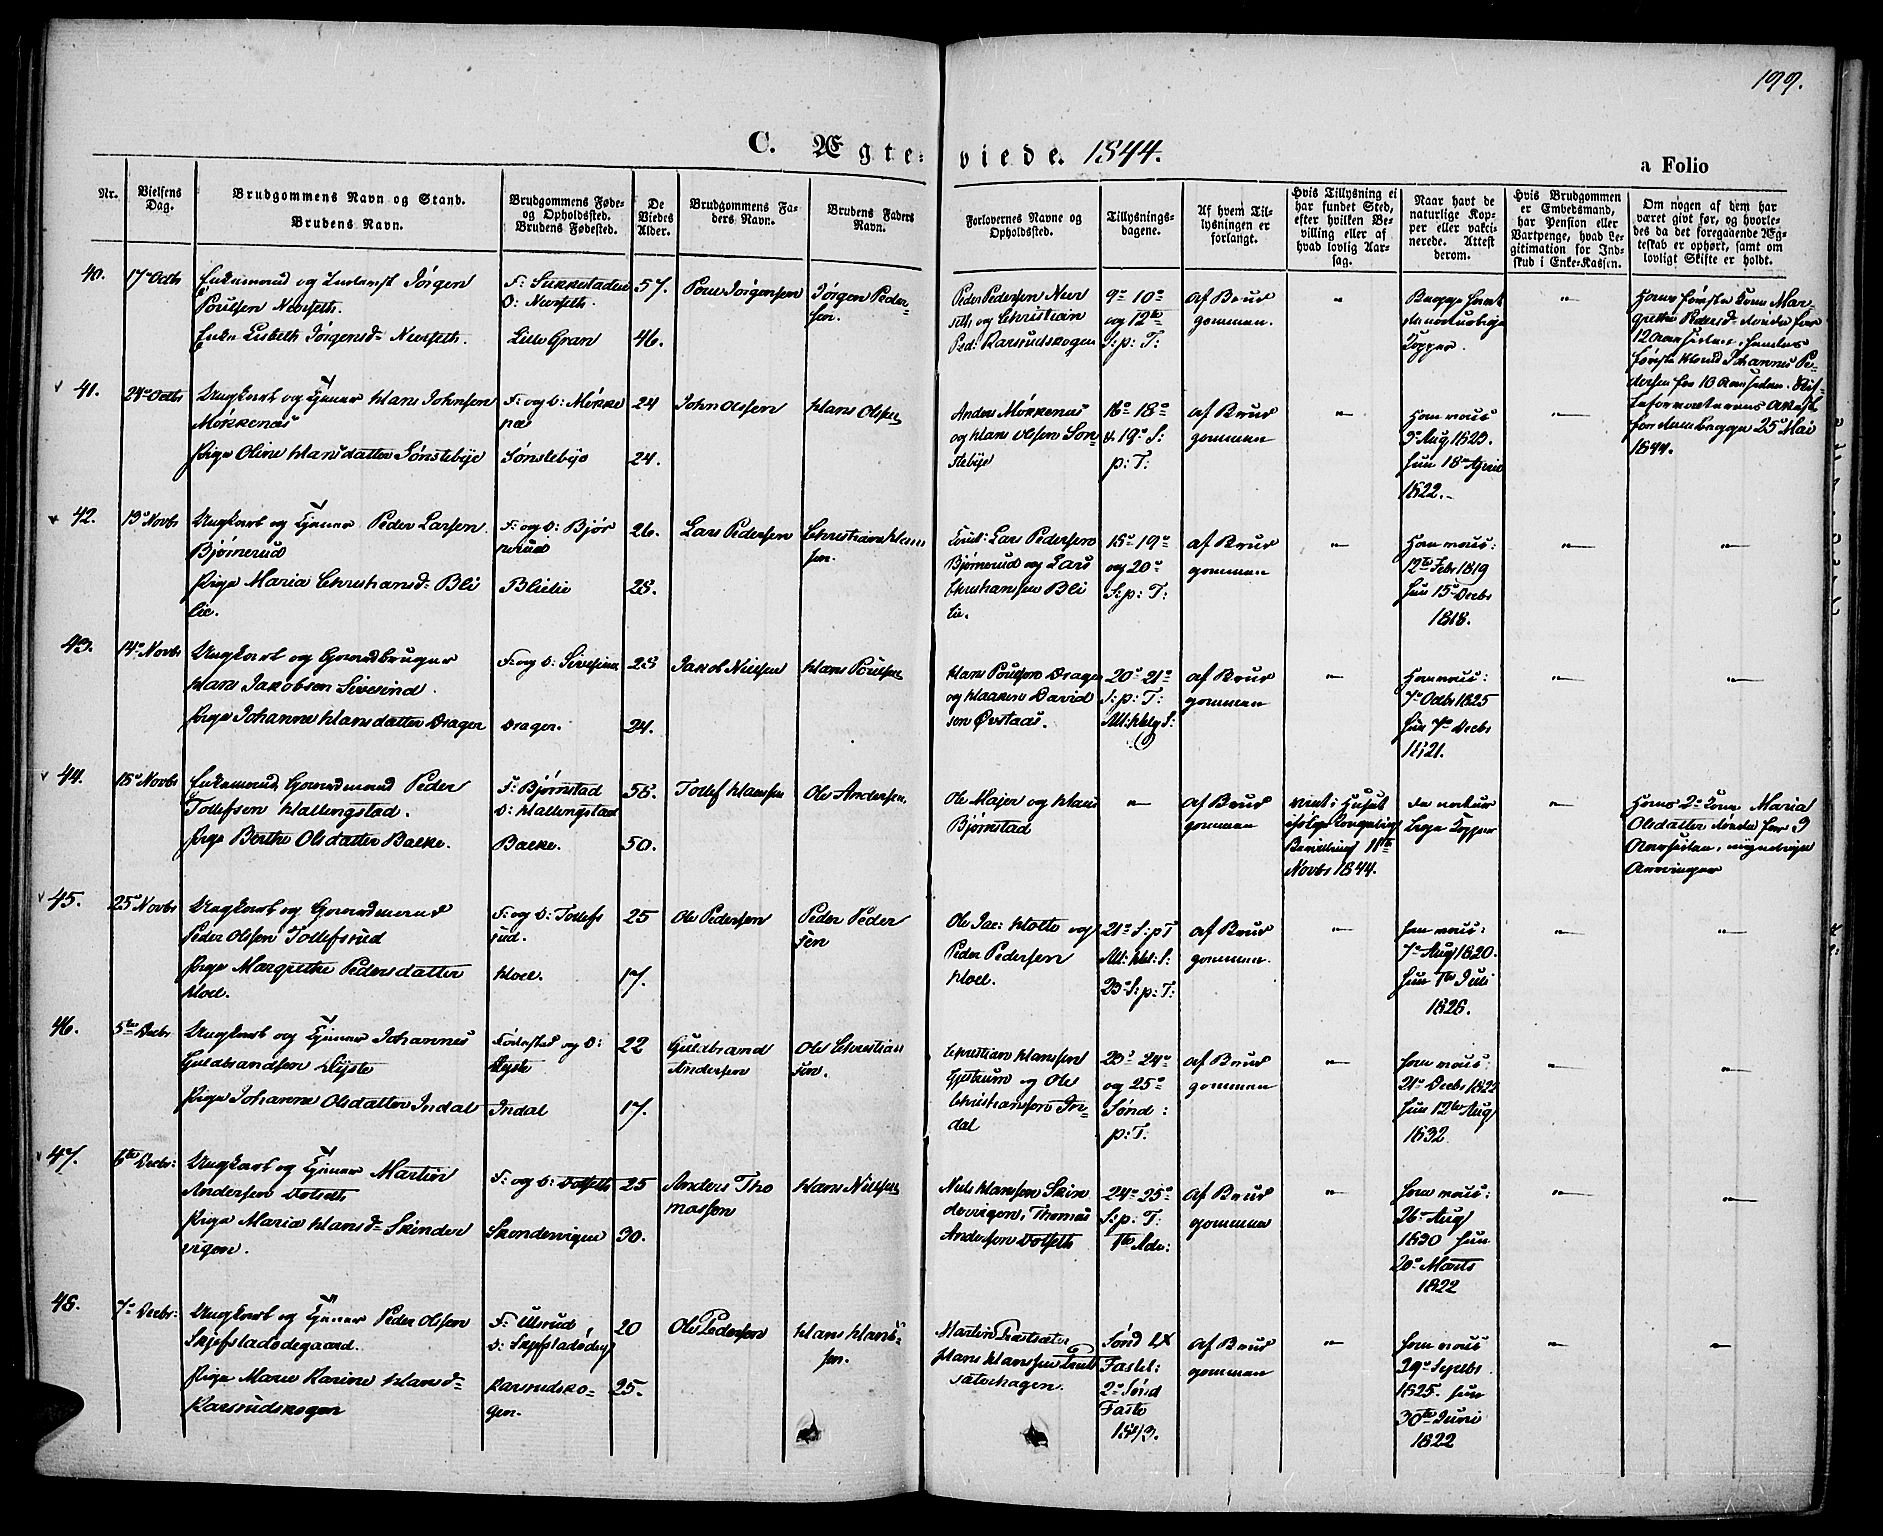 199.
C. Ægteviede. 1844.
a Folio
Nr.
Vielsens Dag.
Brudgommens Navn og Stand. Brudens Navn.
Brudgommens Føde- og Opholdssted. Brudens Fødested.
De Viedes Alder.
Brudgommens Faders Navn.
Brudens Faders Navn.
Forlovernes Navne og Opholdssted.
Tillysningsdagene.
Af hvem Tillysningen er forlangt.
Hvis Tillysning ei har fundet Sted, efter hvilken Bevilling eller af hvad lovlig Aarsag.
Naar havt de naturlige Kopper eller vaktinerede. Attest derom.
Hvis Brudgommen er Embedsmand, har Pension eller Vartpenge, hvad Legitimation for Indskud i Enke-Kassen.
Om nogen af dem har været givt før, og hvorledes da det foregaaende Ægteskab er ophørt, samt om lovligt Skifte er holdt.
40. 17de Octb Enkemand og Jørgen
Poulsen Nerseth.
Enke Lisbeth Jørgensd: Nerseth.
F: Sukkestaden
O: Nerseth.
Lille Gran
57.
46.
Poul Jørgensen
Jørgen Pedersen.
Peder Pedersen Nerseth og Christian
Ped: Karsrudskogen
9de 10de
og 12te
S: p: T:
af Brudgommen.
"
Begge havt
de naturlige
Kopper.
"
Hans første Kone Margrethe Pedersd: døde for
12 Aar siden, hendes
første Mand Johannes Pedersen for 10 Aar siden. Skifteforvalterens Attest
for dem begge 25de Mai
1844.
41. 24de Octb Ungkarl og Tjener Hans Johnsen
Møkkenæs
Pige Oline Hansdatter Sønsteby
F: og O: Møkkenæs
Sønsteby
24
24.
John Olssen
Hans Olsen
Anders Møkkenæs
og Hans Olsen Sønsteby
16de 18de
& 19de S:
p: T:
af Brudgommen
"
Han vac:
3de Aug 1823.
Hun 18de April
1822.
"
42. 13de Novbr Ungkarl og Tjener Peder Larsen
Bjørnerud
Pige Maria Christiansd: Blilie.
F: og O: Bjørnerud
Blilie
26.
25.
Lars Pedersen
Christian Hansen.
Lars Pedersen
Bjørnerud og Lars
Christiansen Blilie.
15de 19de
og 20de
S: p: T:
af Brudgommen
"
Han vac:
12te Febr 1819
Hun 15de Decbr
1818.
"
"
43. 14de Novbr Ungkarl og Gaardbruger
Hans Jakobsen Sivesind.
Pige Johanne Hansdatter Drager
F: og O: Sivesind
Drager.
28
24.
Jakob Nielsen
Hans Poulsen
Hans Poulsen Drager
og Haaken Davidsen Øvstaas.
20de 21de
S: p: T:
All: Helg S:
af Brudgommen
"
Han vac:
7de Octbr 1825
Hun 7de Decbr
1821.
"
"
44. 15de Novbr Enkemand, Gaardmand Peder
Tollefsen Hallengstad.
Pige Berthe Olsdatter Balke.
F: Bjørnstad
O: Hallengstad
Balke.
56.
50.
Tollef Hansen
Ole Andersen.
Ole Majer og Hans
Bjørnstad
"
af Brudgommen
viet i Huset
ifølge Kongelig
Bevilling 11te
Novbr 1844.
de naturlige Kopper
"
Hans 2de Kone Maria
Olsdatter døde for 9
Aar siden, myndige
Arvinger
45. 25de Novbr Ungkarl og Gaardmand
Peder Olssen Tollefsrud
Pige Margrethe Pedersdatter
Hoel.
F: og O: Tollefsrud.
Hoel.
25
17.
Ole Pedersen
Peder Pedersen
Ole Jac: Holte og
Peder Pedersen
Hoel.
21de S: p T
All: Hel: S:
23de S: p: T:
af Brudgommen.
"
Han vac:
7de Aug 1820.
Hun 1te Juli
1826.
"
"
46. 5te Decbr Ungkarl og Tjener Johannes
Guldbrandsen Dyste
Pige Johanne Olsdatter Indal
Fødested og O:
Dyste
Indal
22
17.
Guldbrand
Andersen
Ole Christiansen.
Christian Hanssen
Gjestrum og Ole
Christiansen Indal
23de 24de
og 25de
Sønd:
p: T:
af Brudgommen
"
Han vac:
21de Decbr 1822
Hun 12te Aug
1832.
"
"
47. 6te Decbr: Ungkarl og Tjener Martin
Andersen
Pige Maria Hansd: Skindervigen.
F: og O:
Skindervigen
25
30.
Anders Thomassen
Hans Nielsen
Niels Hanssen Skindervigen, Thomas
Andersen
24de 25de
S: p: T:
1te Adv:
af Brudgommen
"
Han vac:
26de Aug
1830 Hun
20de Marts
1822
"
"
48. 7de Decbr: Ungkarl og Tjener Peder Olssen
Skjefstadødegaard.
Pige Marie Karine Hansd:
Karsrudskogen
F: Ulsrud
O: Skjefstadødeg
Karsrudskogen.
20
25.
Ole Pedersen
Hans Hansen.
Martin
Hans Hanssen
Sønd LX
Fastel:
2de Sønd
Faste
1843.
af Brudgommen
"
Han vac:
29de Septbr
1825. Hun
30te Juni
1822
"
"